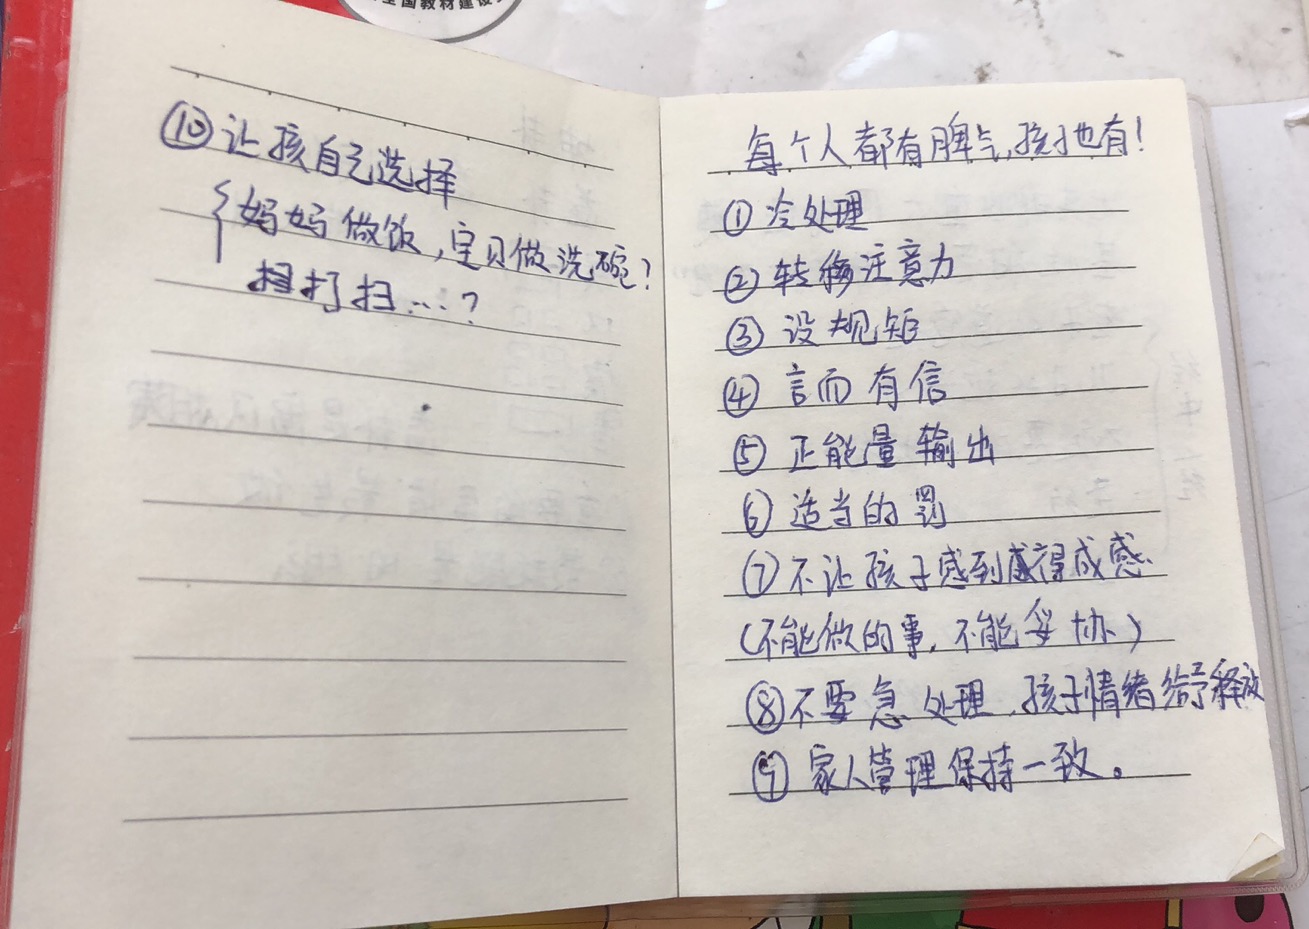 全国教材建设
⑩让孩自己选择
妈妈做饭,宝贝做洗碗?
打扫...?
每个人都有脾气,孩子也有!
①冷处理
②转移注意力
③设规矩
④言而有信
⑤正能量输出
⑥适当的罚
⑦不让孩子感到获得成感
(不能做的事,不能妥协)
⑧不要急处理,孩子情绪给予释放
⑨家人管理保持一致。